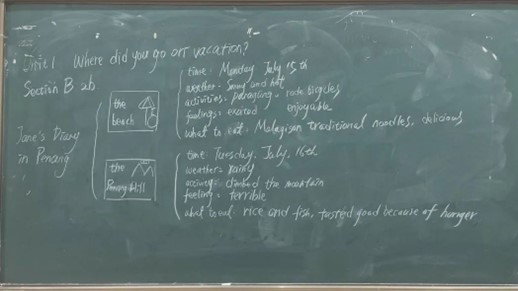 Unit 1 Where did you go on vacation?
Section B 2b
Jane's Diary
in Penang
the
beach
time: Monday July 15th
weather: Sunny and hot
activities: paragling, rode bicycles
feelings: excited enjoyable
what to eat: Malaysian traditional noodles, delicious
the
Penang Hill
time: Tuesday, July, 16th
weather: rainy
activity: climbed the mountain
feeling: terrible
what to eat: rice and fish, tasted good because of hunger